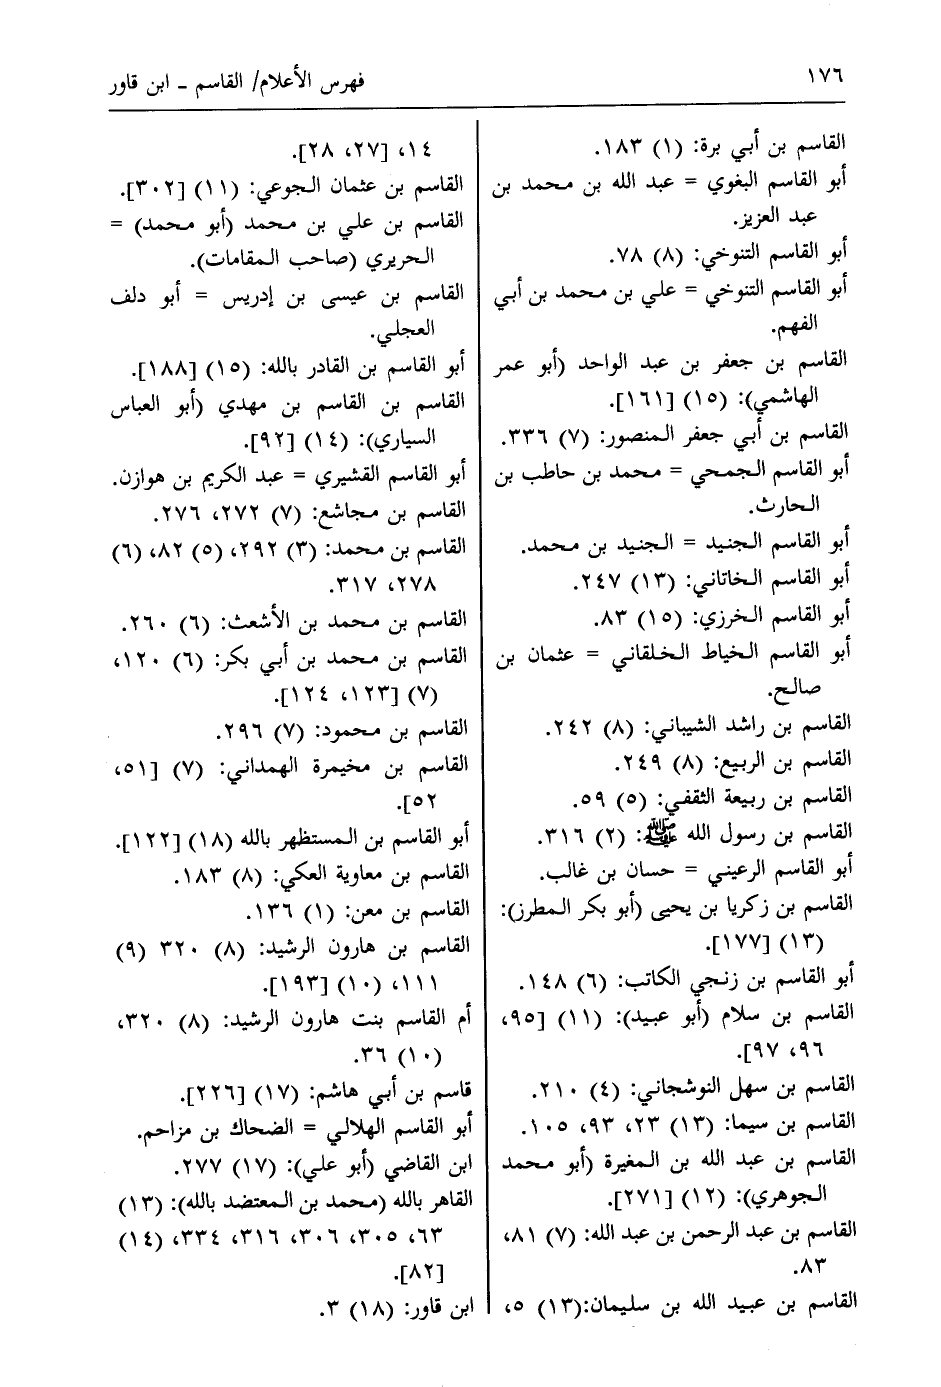 ١٧٦
فهرس الأعلام/ القاسم ـ ابن قاور
القاسم بن أبي برة: (١) ١٨٣.
أبو القاسم البغوي = عبد الله بن محمد بن
عبد العزيز.
أبو القاسم التنوخي: (٨) ٧٨.
أبو القاسم التنوخي = علي بن محمد بن أبي
الفهم.
القاسم بن جعفر بن عبد الواحد (أبو عمر
الهاشمي): (١٥) [١٦١].
القاسم بن أبي جعفر المنصور: (٧) ٣٣٦.
أبو القاسم الجمحي = محمد بن حاطب بن
الحارث.
أبو القاسم الجنيد = الجنيد بن محمد.
أبو القاسم الخاتاني: (١٣) ٢٤٧.
أبو القاسم الخرزي: (١٥) ٨٣.
أبو القاسم الخياط الخلقاني = عثمان بن
صالح.
القاسم بن راشد الشيباني: (٨) ٢٤٢.
القاسم بن الربيع: (٨) ٢٤٩.
القاسم بن ربيعة الثقفي: (٥) ٥٩.
القاسم بن رسول الله ﷺ: (٢) ٣١٦.
أبو القاسم الرعيني = حسان بن غالب.
القاسم بن زكريا بن يحيى (أبو بكر المطرز):
(١٣) [١٧٧].
أبو القاسم بن زنجي الكاتب: (٦) ١٤٨.
القاسم بن سلام (أبو عبيد): (١١) [٩٥،
٩٦، ٩٧].
القاسم بن سهل النوشجاني: (٤) ٢١٠.
القاسم بن سيما: (١٣) ٢٣، ٩٣، ١٠٥.
القاسم بن عبد الله بن المغيرة (أبو محمد
الجوهري): (١٢) [٢٧١].
القاسم بن عبد الرحمن بن عبد الله: (٧) ٨١،
٨٣.
القاسم بن عبيد الله بن سليمان:(١٣) ٥،
١٤، [٢٧، ٢٨].
القاسم بن عثمان الجوعي: (١١) [٣٠٢].
القاسم بن علي بن محمد (أبو محمد) =
الحريري (صاحب المقامات).
القاسم بن عيسى بن إدريس = أبو دلف
العجلي.
أبو القاسم بن القادر بالله: (١٥) [١٨٨].
القاسم بن القاسم بن مهدي (أبو العباس
السياري): (١٤) [٩٢].
أبو القاسم القشيري = عبد الكريم بن هوازن.
القاسم بن مجاشع: (٧) ٢٧٢، ٢٧٦.
القاسم بن محمد: (٣) ٢٩٢، (٥) ٨٢، (٦)
٢٧٨، ٣١٧.
القاسم بن محمد بن الأشعث: (٦) ٢٦٠.
القاسم بن محمد بن أبي بكر: (٦) ١٢٠،
(٧) [١٢٣، ١٢٤].
القاسم بن محمود: (٧) ٢٩٦.
القاسم بن مخيمرة الهمداني: (٧) [٥١،
٥٢].
أبو القاسم بن المستظهر بالله (١٨) [١٢٢].
القاسم بن معاوية العكي: (٨) ١٨٣.
القاسم بن معن: (١) ١٣٦.
القاسم بن هارون الرشيد: (٨) ٣٢٠ (٩)
١١١، (١٠) [١٩٣].
أم القاسم بنت هارون الرشيد: (٨) ٣٢٠،
(١٠) ٣٦.
قاسم بن أبي هاشم: (١٧) [٢٢٦].
أبو القاسم الهلالي = الضحاك بن مزاحم.
ابن القاضي (أبو علي): (١٧) ٢٧٧.
القاهر بالله (محمد بن المعتضد بالله): (١٣)
٦٣، ٣٠٥، ٣٠٦، ٣١٦، ٣٣٤، (١٤)
[٨٢].
ابن قاور: (١٨) ٣.